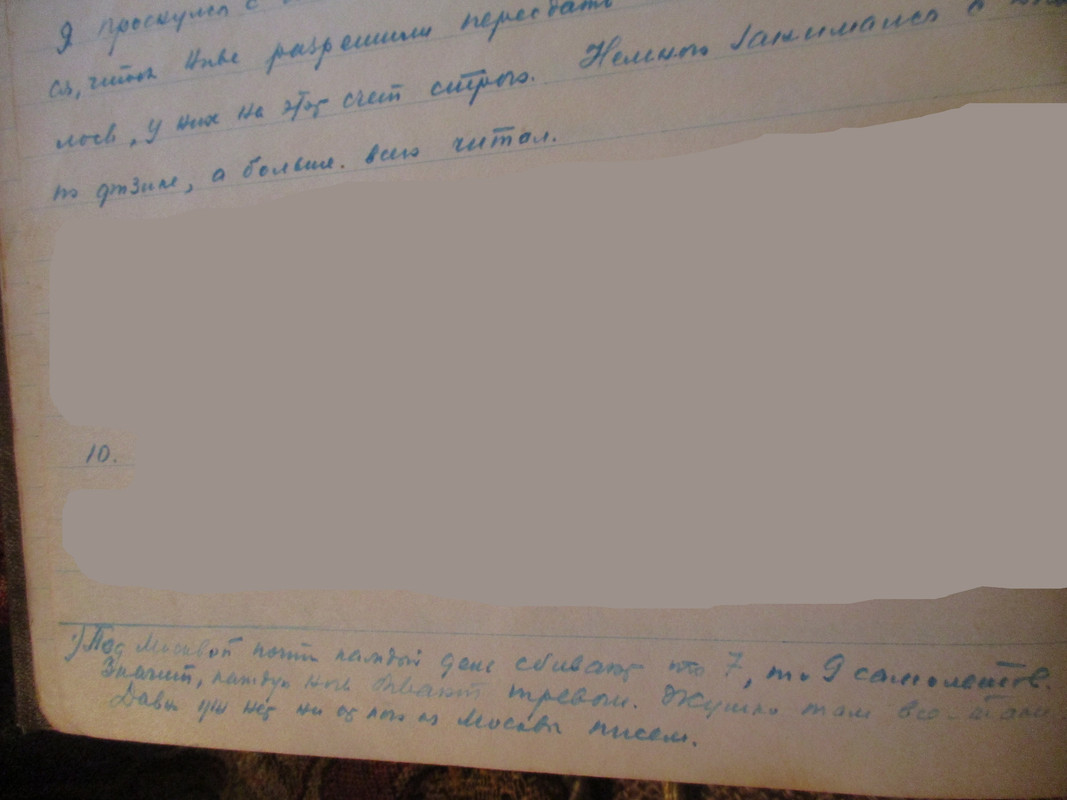 Я проснулся с
сь, чтоб Ниве разрешили пересдать
лось, у них на этот счет строго. Немного занимался
по физике, а больше всего читал.
10.
1) Под Москвой почти каждый день сбивают то 7, то 9 самолетов.
Значит, каждую ночь бывают тревоги. Жутко там все-таки
Давно уж нет ни от кого из Москвы писем.